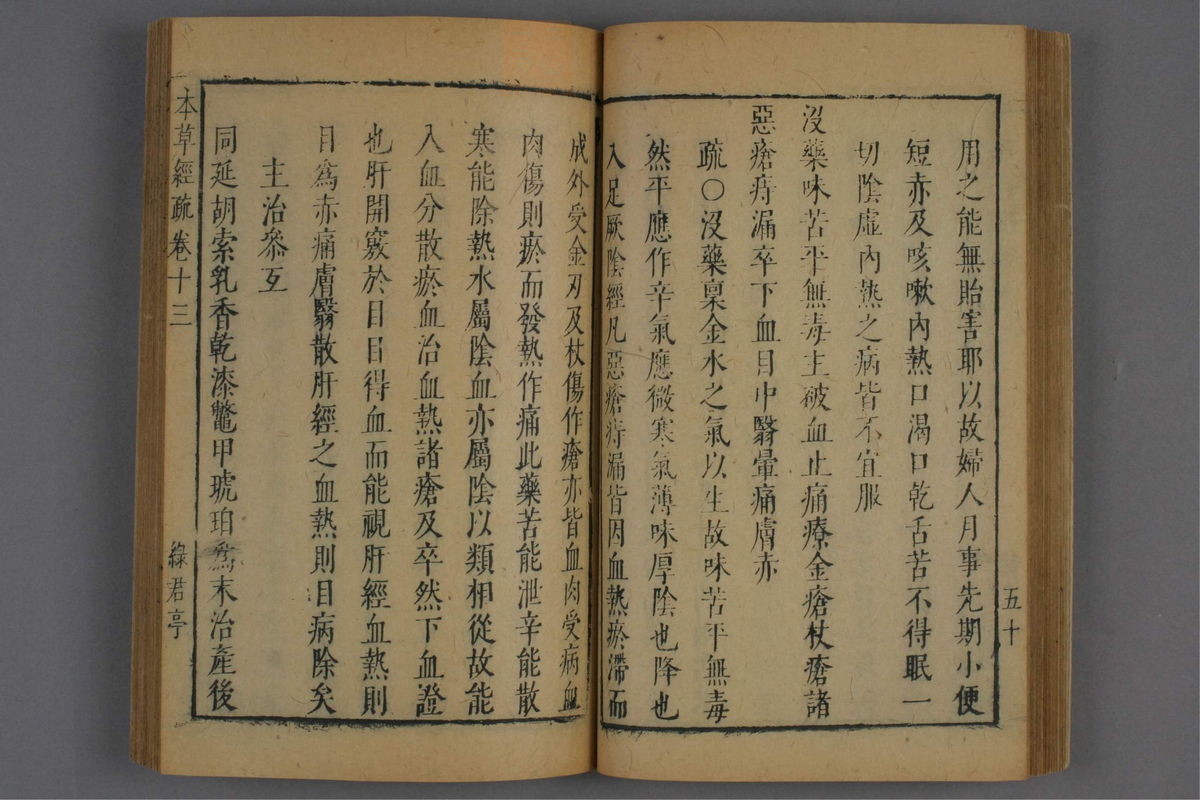 五十
用之能無貽害耶以故婦人月事先期小便
短赤及咳嗽內熱口渴口乾舌苦不得眠一
切陰虛內熱之病皆不宜服
沒藥味苦平無毒主破血止痛療金瘡杖瘡諸
惡瘡痔漏卒下血目中翳暈痛膚赤
疏○沒藥稟金水之氣以生故味苦平無毒
然平應作辛氣應微寒氣薄味厚陰也降也
入足厥陰經凡惡瘡痔漏皆因血熱瘀滯而
成外受金刃及杖傷作瘡亦皆血肉受病血
肉傷則瘀而發熱作痛此藥苦能泄辛能散
寒能除熱水屬陰血亦屬陰以類相從故能
入血分散瘀血治血熱諸瘡及卒然下血證
也肝開竅於目目得血而能視肝經血熱則
目為赤痛膚翳散肝經之血熱則目病除矣
主治參互
同延胡索乳香乾漆鱉甲琥珀為末治產後
本草經疏卷十三
綠君亭